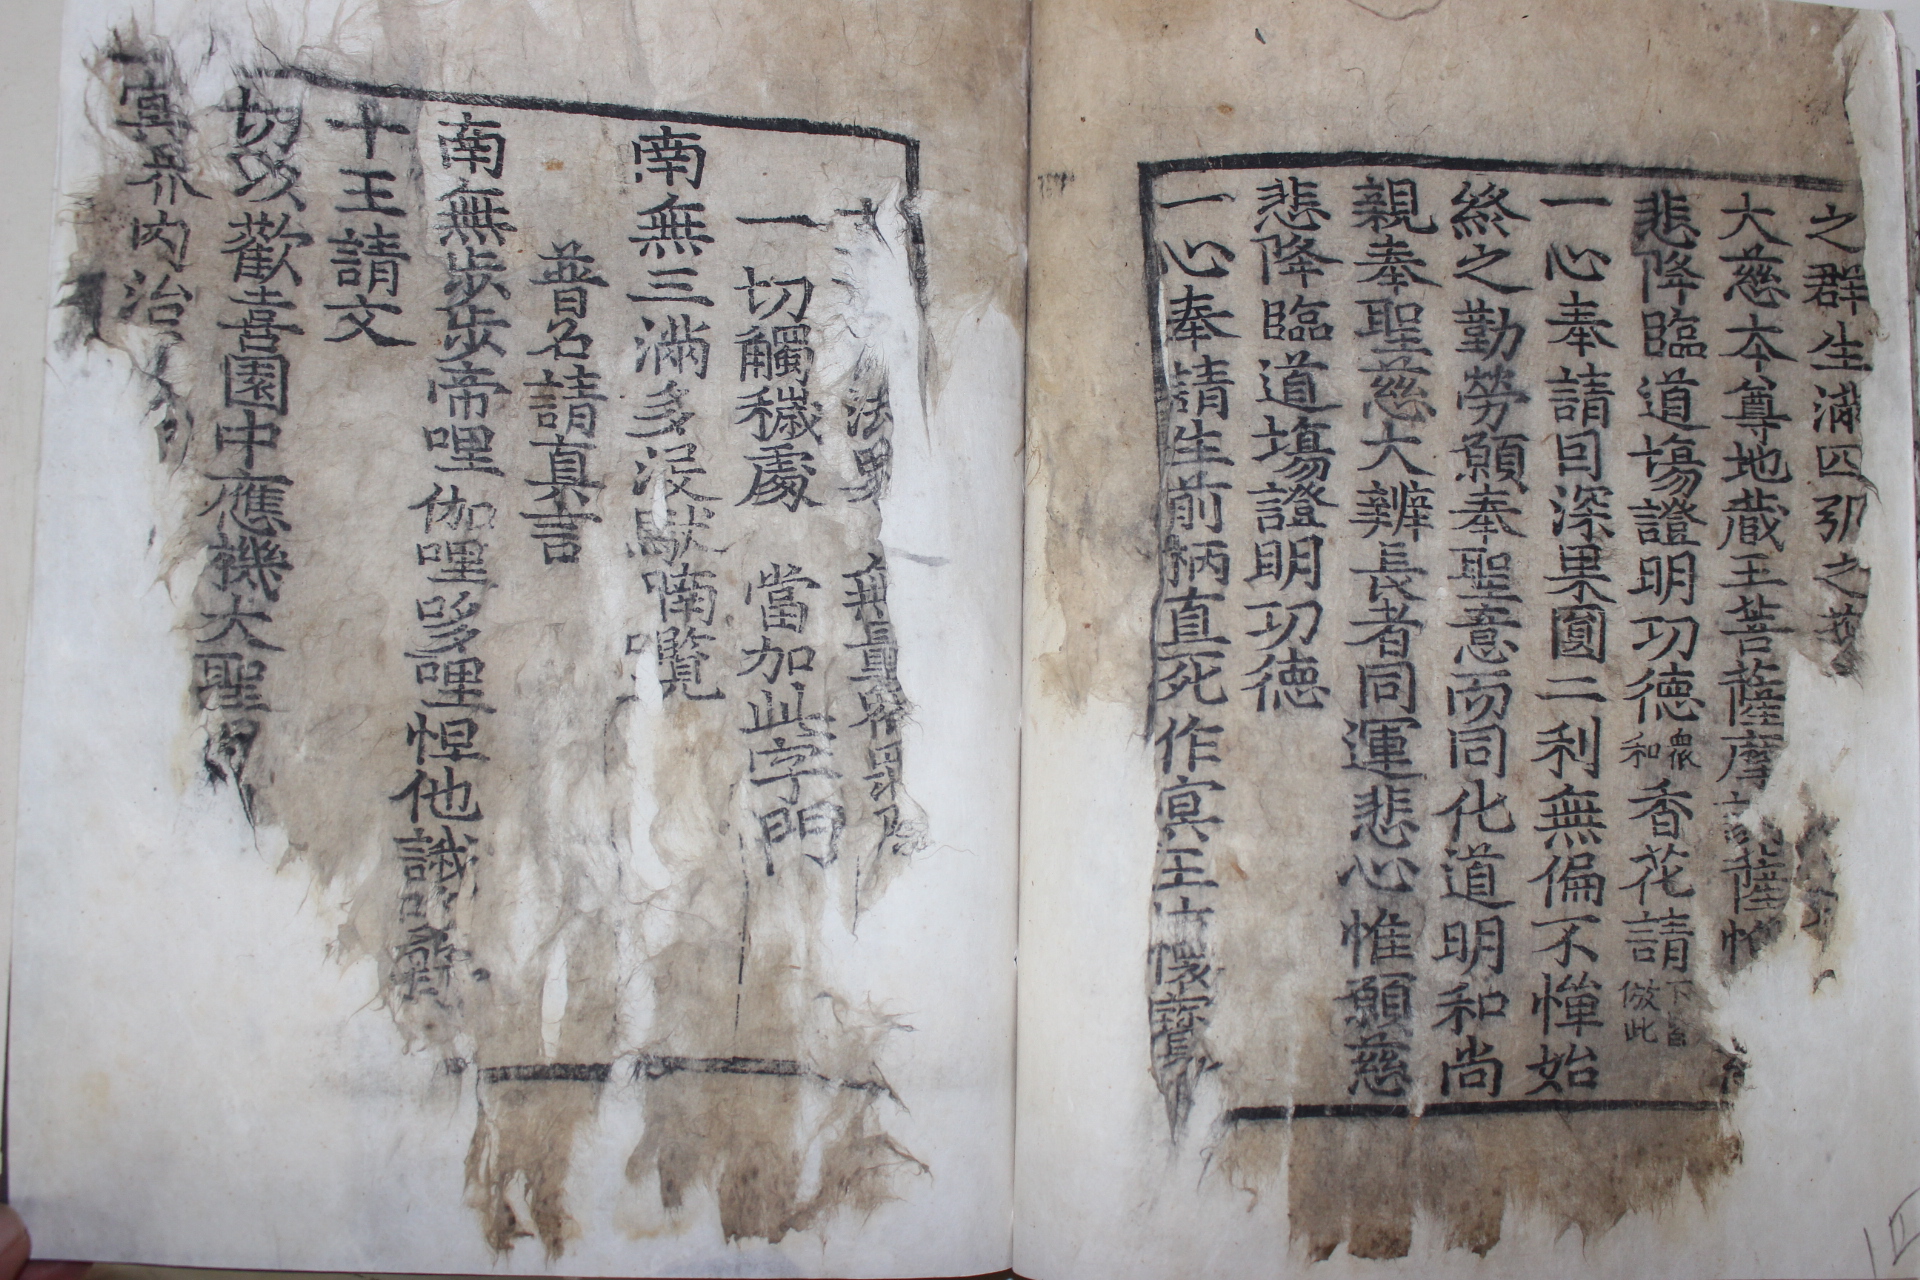 之群生滿四弘之
大慈本尊地蔵王菩薩摩訶薩惟
悲降臨道場證明功德 衆和 香花請 下皆倣此
一心奉請因深果圎二利無偏不憚始
終之勤勞願奉聖意而同化道明和尚
親奉聖慈大辨長者同運悲心惟願慈
悲降臨道場證明功德
一心奉請生前柄直死作冥王懷
法界 無量
一切觸穢處 當加此字門
南無三滿多没馱喃囕
普召請真言
南無步步帝哩伽哩哆哩怛他誐
十王請文
切以歡喜園中應機大聖
冥界内治